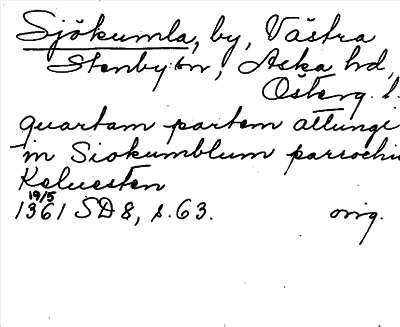 Sjökumla, by, Västra
Stenby sn, Aska hd,
Österg. l.
quartam partem attungi
in Siokumblum parrochi
Keluesten
19/5
1361 SD 8, s. 63. orig.